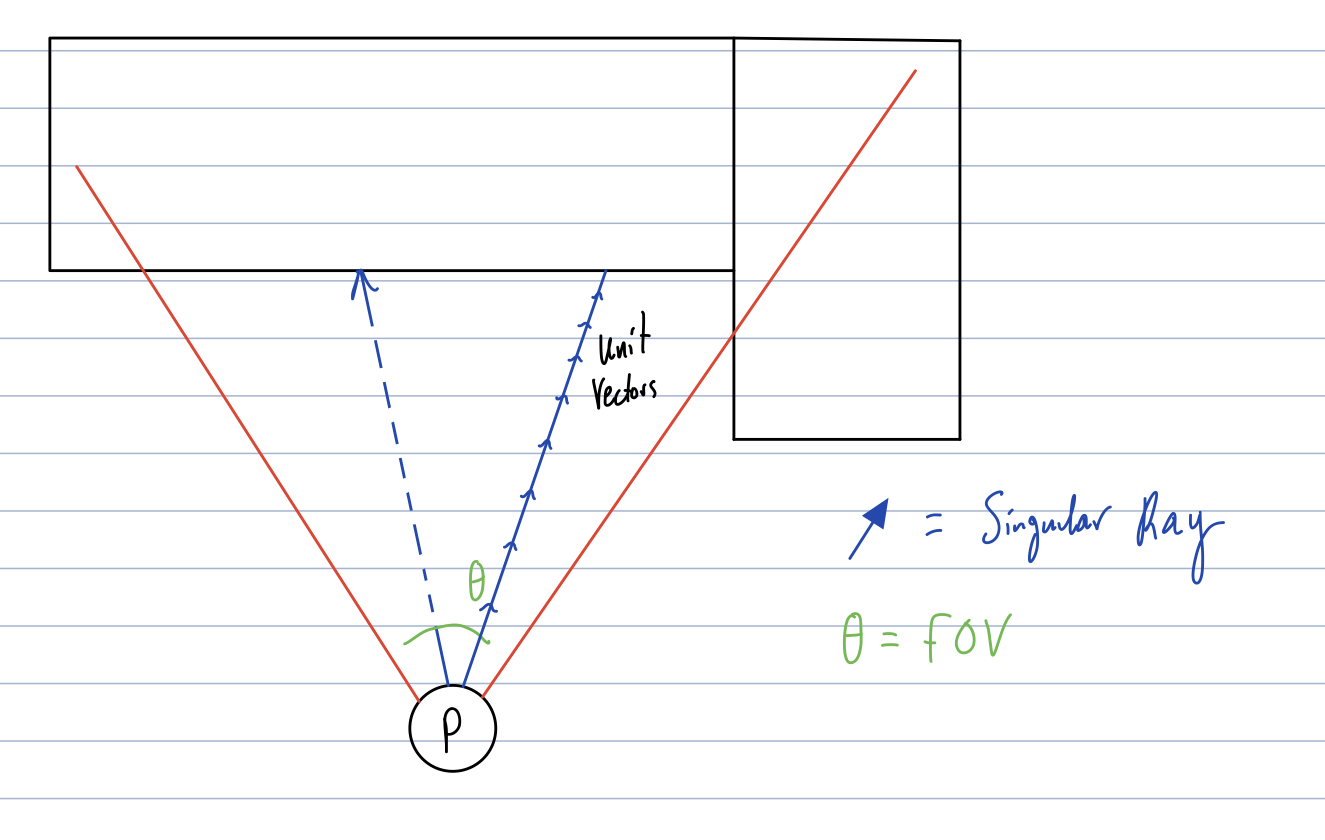 Unit
Vectors
θ
= Singular Ray
θ = FOV
P